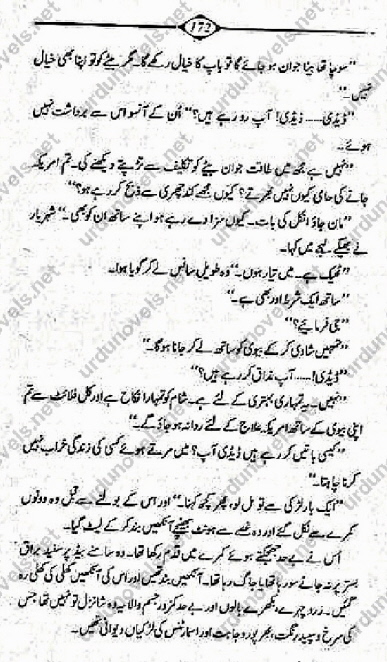 172
"سوچا تھا بیٹا جوان ہو جائے گا تو باپ کا خیال رکھے گا۔ مگر بیٹے کو تو اپنا بھی خیال
نہیں۔"
"ڈیڈی..... ڈیڈی! آپ رو رہے ہیں؟" اُن کے آنسو اس سے برداشت نہیں
ہوئے۔
"نہیں ہے مجھ میں طاقت جوان بیٹے کو تکلیف سے تڑپتے دیکھنے کی۔ تم امریکہ
جانے کی حامی کیوں نہیں بھرتے؟ کیوں مجھے کند چھری سے ذبح کر رہے ہو؟"
"مان جاؤ انکل کی بات۔ کیوں سزا دے رہے ہو اپنے ساتھ ان کو بھی۔" شہریار
نے بھیگے لہجے میں کہا۔
"ٹھیک ہے۔ میں تیار ہوں۔" وہ طویل سانس لے کر گویا ہوا۔
"ساتھ ایک شرط اور بھی ہے۔"
"جی فرمایئے؟"
"تمہیں شادی کر کے بیوی کو ساتھ لے کر جانا ہوگا۔"
"ڈیڈی!..... آپ مذاق کر رہے ہیں؟"
"نہیں۔ یہ تمہاری بہتری کے لئے ہے۔ شام کو تمہارا نکاح ہے اور کل فلائٹ سے تم
اپنی بیوی کے ساتھ امریکہ علاج کے لئے روانہ ہو جاؤ گے۔"
"کیسی باتیں کر رہے ہیں ڈیڈی آپ؟ میں مرتے ہوئے کسی کی زندگی خراب نہیں
کرنا چاہتا۔"
"ایک بار لڑکی سے تو مل لو، پھر کچھ کہنا۔" اور اس کے بولنے سے قبل وہ دونوں
کمرے سے نکل گئے اور وہ غصے سے ہونٹ بھینچے آنکھیں بند کر کے لیٹ گیا۔
اُس نے بے حد جھجکتے ہوئے کمرے میں قدم رکھا تھا۔ وہ سامنے بیڈ پر سفید براق
بستر پر نہ جانے سو رہا تھا یا جاگ رہا تھا۔ آنکھیں بند تھیں اور اس کی آنکھیں کھلی کی کھلی رہ
گئیں۔ زرد چہرے، بکھرے بالوں اور بے حد کمزور جسم والا یہ وہ شانزل تو نہیں تھا جس
کی سرخ و سپید رنگت، بھرپور وجاہت اور اسمارٹنس کی لڑکیاں دیوانی تھیں۔
urdunovels.net